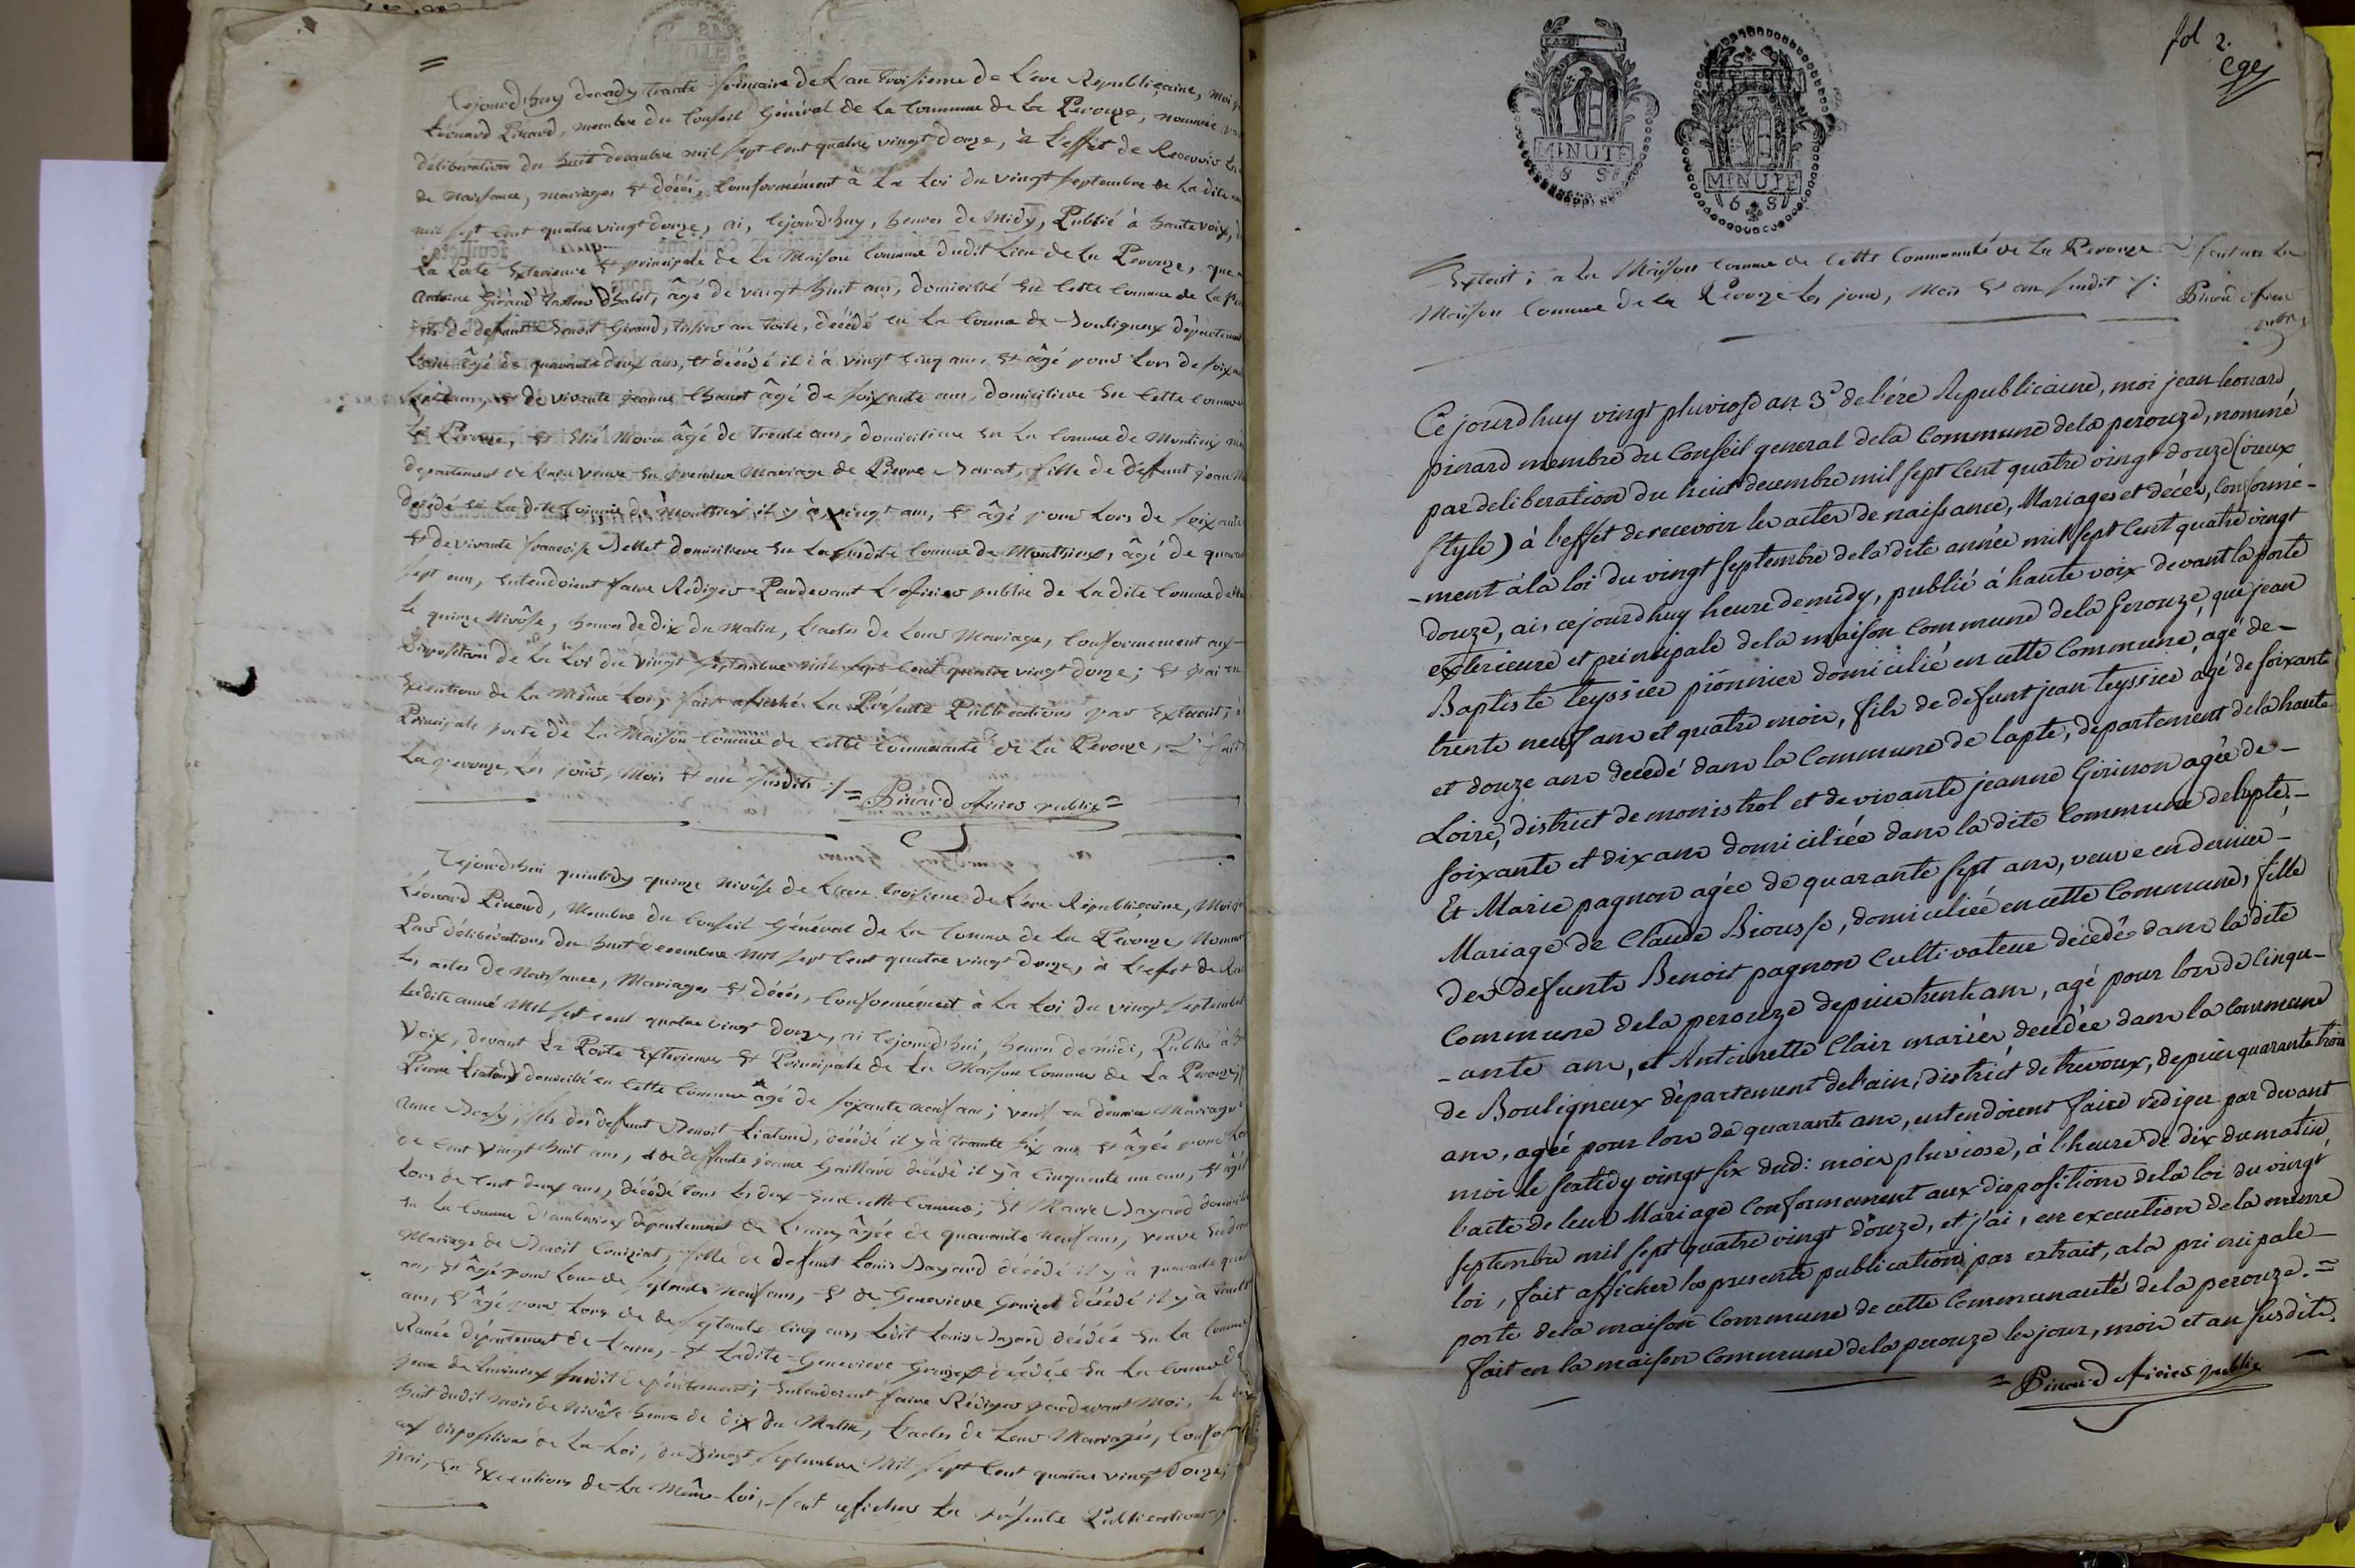 =
Cejourd'huy decady trante frimaire de L'an troisieme de L'ere Republicaine, moi
Léonard Pinard, membre du Conseil Général de la Commune de La Perouze, nommé
déliberation du huit decembre mil sept Cent quatre vingt douze, à L'effet de Recevoir Les
de Naissance, mariages et décés, Conformément à La Loi du vingt septembre de La dite
mil sept Cent quatre vingt douze, ai, Cejourd'huy, heures de Midy, Publié à haute voix,
La Porte Exterieure et principale de La Maison Commune dudit Lieu de La Perouze, que
Antoine Giraud tailleur D'habit, âgé de vingt huit ans, domicilié en Cette Commune de La
fils de defunt Benoit Giraud, tissier en toile, décédé en La Comune de Bouligneux département
L'ain âgé de quarante deux ans, et décédé il i à vingt Cinq ans, et âgé pour Lors de soixante
huit ans, et de vivante jeanne Chanet âgé de soixante ans, domiciliere en Cette Commune
La Perouze, et Elié Morin âgé de trente ans, domiciliere en La Commune de Montieux
departement de L'ain veuve en premiere Mariage de Pierre Barat, fille de defunt jean
décédé en La dite Comune de Montieux il y à vingt ans, et âgé pour Lors de soixante
et de vivante francoise Bellet domiciliere en La susdite Comune de Monthieux, âgé de quarante
sept ans, entendoient faire Rediger Pardevant L'oficier public de La dite Commune de
Le quinze Nivôse, heures de dix du Matin, L'actes de Leur Mariage, Conformement aux
Disposition de La Loi du vingt septembre mil sept Cent quatre vingt douze; et j'ai en
Execution de La Même Loi, fait afiché La Présente Publications par Extrait, à
Principale porte de La Maison Comune de Cette Communauté de La Perouze, fait
La Perouze, Les jours, Mois et an susdits ./. = Pinard oficier public =
Cejourd'hui quintidy quinze Nivôse de L'an troisieme de L'ere Républicaine, Moi
Léonard Pinard, Membre du Conseil Général de La Comune de La Perouze, Nommé
Par déliberations du huit Decembre Mil sept Cent quatre vingt douze, à L'effet de
Les actes de Naissance, Mariages et décés, Conformément à La Loi du vingt septembre
Ladite année Mil sept cent quatre vingt douze, ai Cejourd'hui, heures de midi, Publié à
Voix, devant La Porte Exterieure et Principale de La Maison Comune de La Perouze,
Pierre Liatoud domicilié en Cette Comune âgé de soixante neuf ans; veuf en dernier Mariage
anne fils des défunt Benoit Liatoud, décédé il y à trante six ans et âgée pour Lors
de Cent vingt huit ans, et de deffunte jeanne Gaillard décédé il y à Cinquente un ans, et âgé
Lors de Cent deux ans, décédé tous Les deux en Cette Comune; et Marie Bayard domiciliée
en La Comune d'amberieux département de L'ain, âgée de quarante neuf ans, veuve en
Mariage de Benoit Couziat, fille de deffunt Louis Bayard décédé il y à quarante
ans, et âgé pour Lors de septante neuf ans, et de Genevieve Granget décédé il y à trante
ans, et âgé pour Lors de septante Cinq ans, Ledit Louis Bayard décédé en La Comune
Rancé département de L'ain, et Ladite Genevieve Granget décédée en La Comune de
susdit departement; Entendoient faire Rédiger pardevant Moi, Le
huit dudit mois de Nivôse heures de dix du Matin, L'actes de Leur Mariages,
aux dispositions de La Loi, du vingt septembre Mil sept Cent quatre vingt douze;
j'ai, en Executions de La Même Loi, fait afficher La présente Publications
fol 2.
MINUTE
6 S
MINUTE
6 S
Extrait; à La Maison Comune de Cette Communauté de La Perouze fait en La
Maison Comune de La Perouze Les jour, Mois et an susdit ./. Pinard oficier
public
Ce jourd'huy vingt pluviose an 3e de l'ére Republicaine, moi jean leonard
pinard membre du Conseil general dela Commune dela perouze, nommé
par deliberation du huit decembre mil sept Cent quatre vingt douze (vieux
style) à l'effet de recevoir les actes de naissance, Mariages et décès, Conformé-
-ment à la loi du vingt septembre dela dite année mil sept Cent quatre vingt
douze, ai, cejourdhuy heure de midy, publié à haute voix devant la porte
exterieure et principale dela maison Commune dela perouze, que jean
Baptiste teyssier pionnier domicilié en cette Commune, agé de-
trente neuf ans et quatre mois, fils de defunt jean teyssier agé de soixante
et douze ans decedé dans la Commune de lapte, departement dela haute
Loire, district de monistrol et de vivante jeanne Girinon agée de-
soixante et dix ans domiciliée dans la dite Commune delapte.-
Et Marie pagnon agée de quarante sept ans, veuve en dernier-
Mariage de Claude Briousse, domiciliée en cette Commune, fille
des defunts Benoit pagnon Cultivateur décedé dans la dite
Commune dela perouze depuis trente ans, agé pour lors de Cinqu-
-ante ans, et Antoinette Clair mariés decedée dans la commune
de Bouligneux département del'ain, district de trevoux, depuis quarante trois
ans, agée pour lors de quarante ans, entendoient faire rediger par devant
moi le sextidy vingt six dud: mois pluviose, à l'heure de dix du matin
l'acte de leur Mariage Conformement aux dispositions dela loi du vingt
septembre mil sept quatre vingt douze, et j'ai, en execution dela meme
loi, fait afficher la presente publication par extrait, ala principale-
porte dela maison Commune de cette Communauté dela perouze.=
fait en la maison Commune dela perouze les jour, mois et an susdits.
= Pinard oficier public